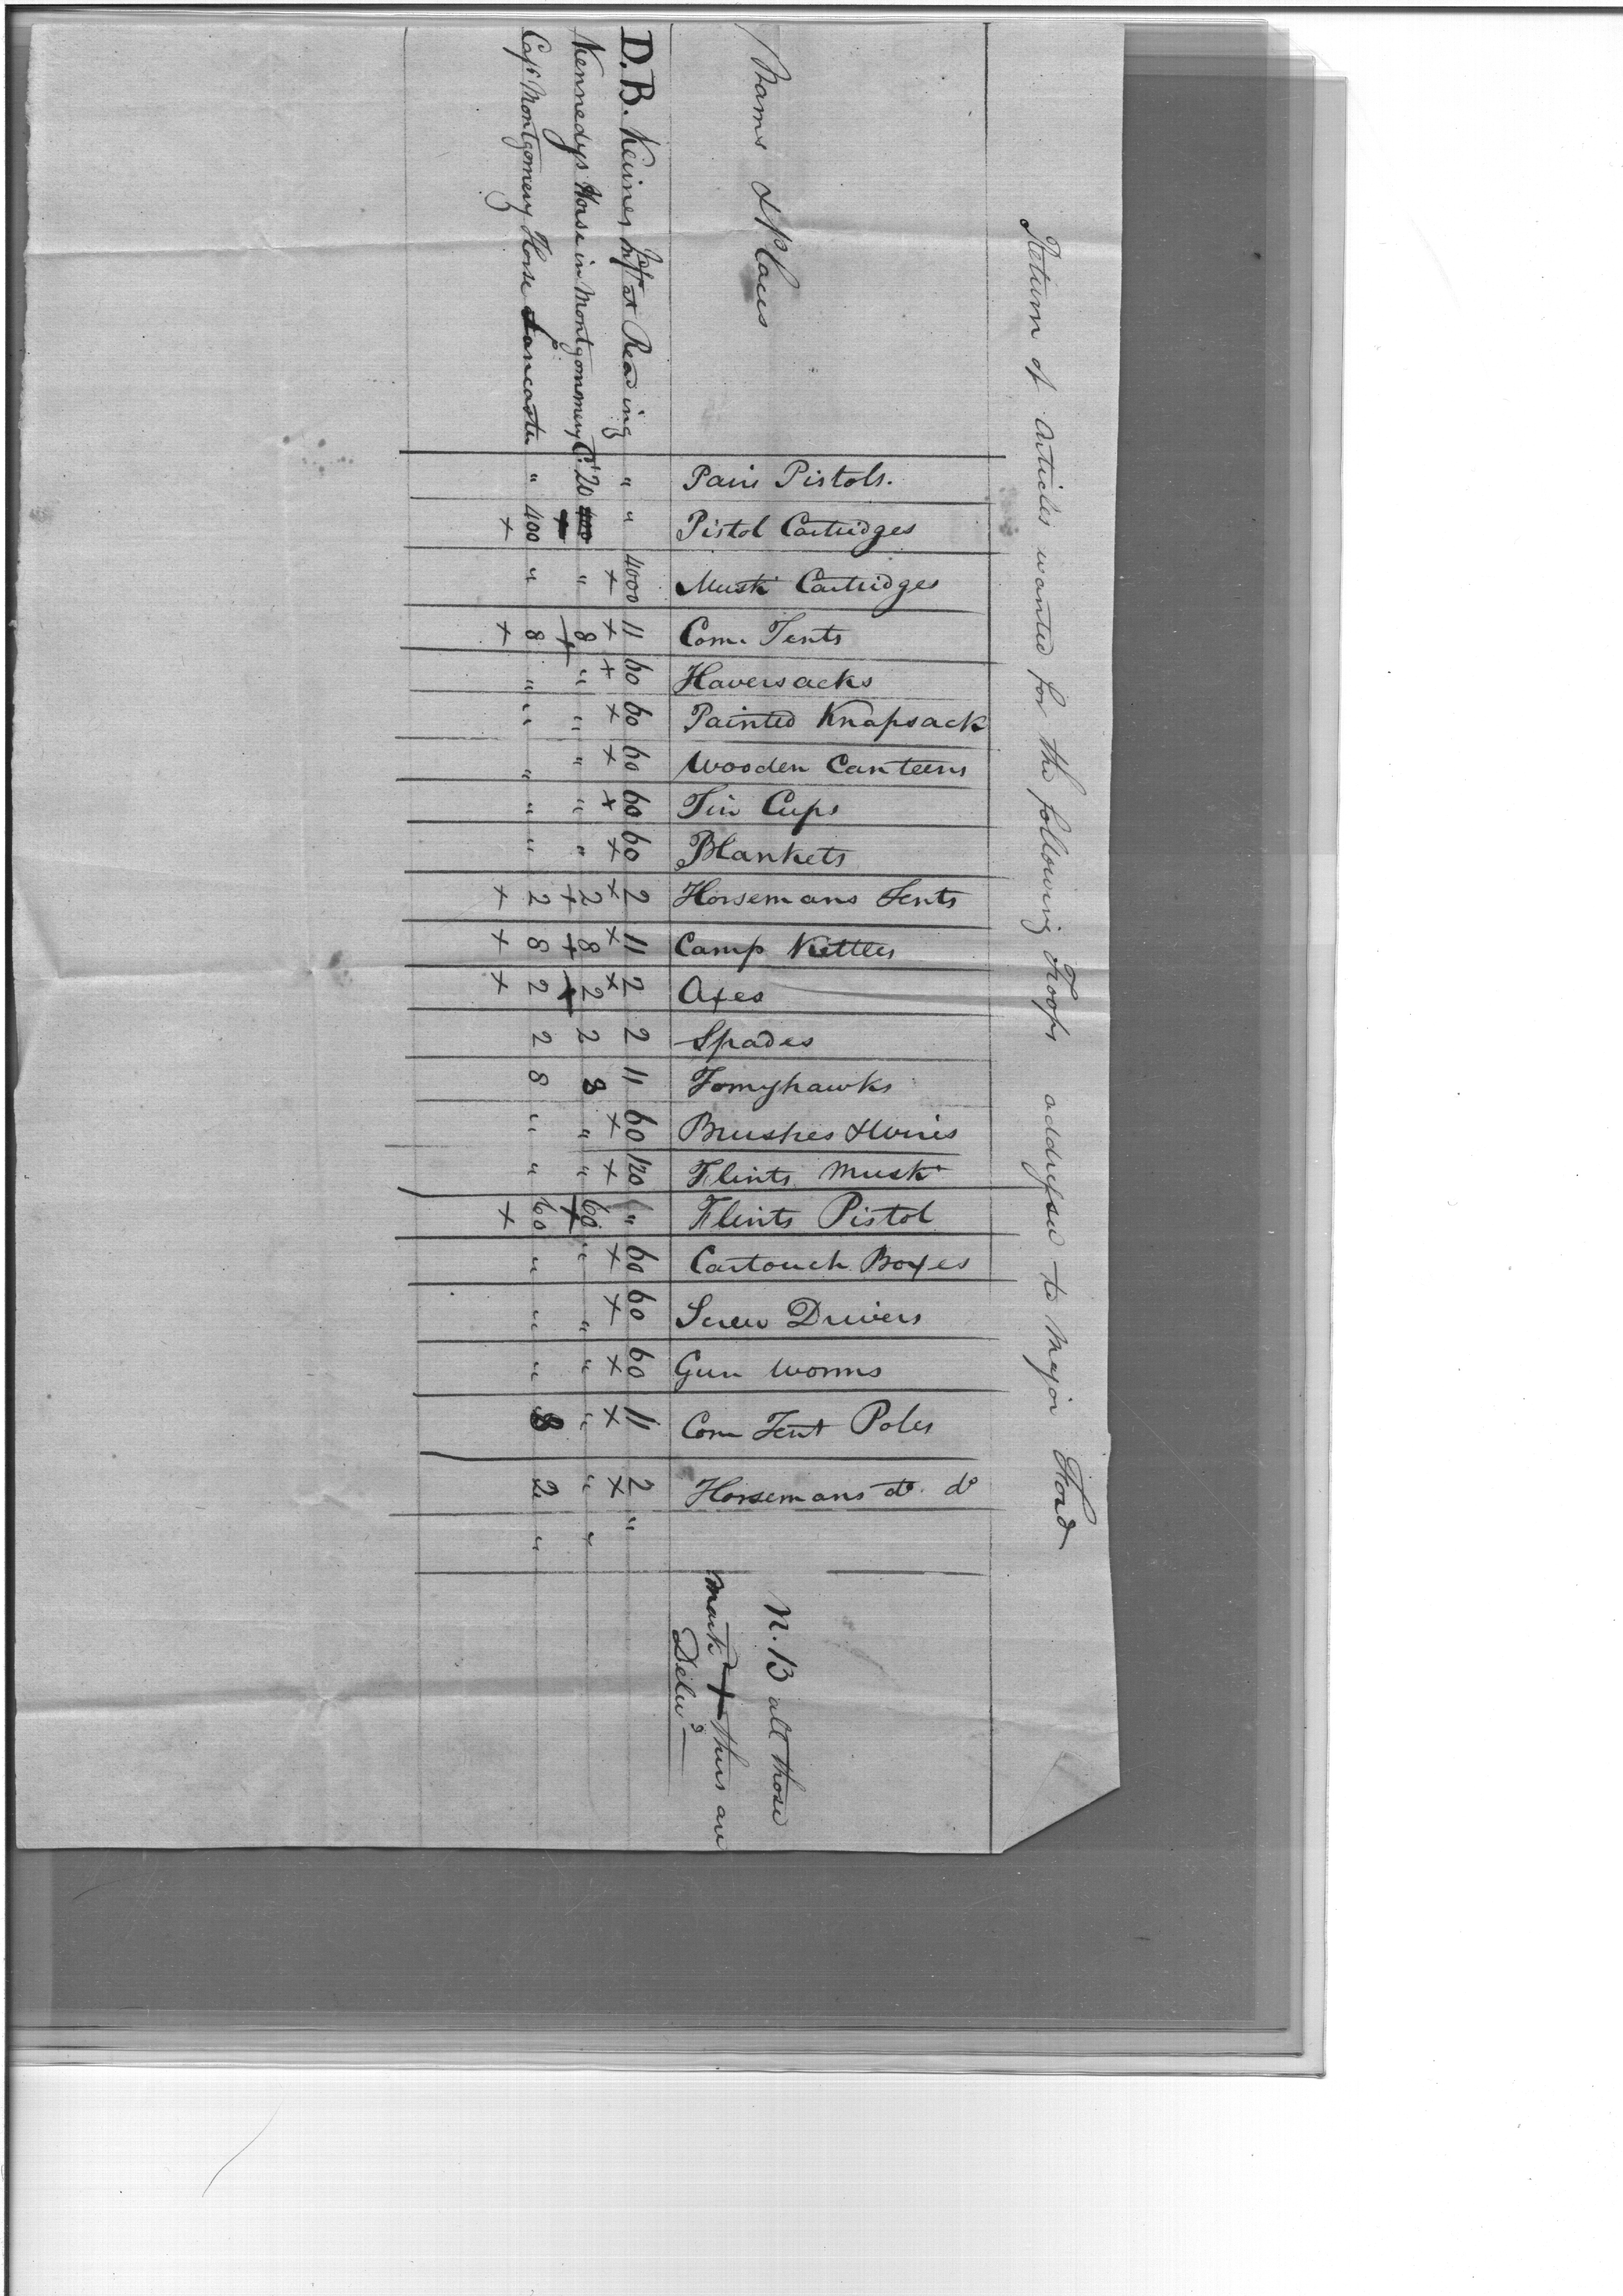 Return of Articles wanted for the following Troops addressed to Major Ford
Names & Places
Pairs Pistols.
Pistol Cartridges
Musk^t Cartridges
Com. Tents
Haversacks
Painted Knapsack
Wooden Canteens
Tin Cups
Blankets
Horsemans Tents
Camp Kettles
Axes
Spades
Tomyhawks
Brushes & Wires
Flints Musk^t
Flints Pistol
Cartouch Boxes
Screw Drivers
Gun Worms
Com Tent Poles
Horsemans d^o. d^o
N.B all those
mark^d + thus are
Deliv^d
D. B. at Reading " " 4000 + 11 + 60 + 60 + 60 + 60 + 60 + 2 + 11 + 2 + 2 11 60 + 120 + " 60 + 60 + 60 + 11 + 2 + "
Kennedys Horse in Montgomery C^o. 20 400 + " 8 + " " " " " 2 + 8 + 2 + 2 8 " " 60 + " " " " " "
Cap^t Montgomery Horse Lancaster " 400 + " 8 + " " " " " 2 + 8 + 2 + 2 8 " " 60 + " " " 8 2 "